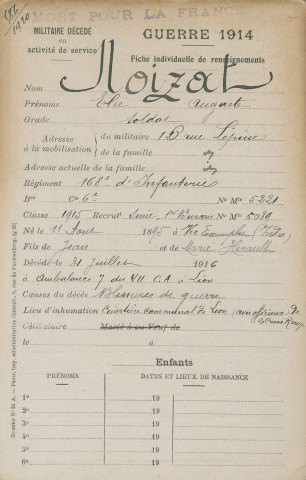 MORT POUR LA FRANCE
MILITAIRE DÉCÉDÉ
en
activité de service
GUERRE 1914
Fiche individuelle de renseignements
Nom Noizat
Prénoms Elie Auguste
Grade soldat
Adresse à la mobilisation du militaire 15 rue Lépine
de la famille
Adresse actuelle de la famille
Régiment 162e d'Infanterie
Cie 6e No Mle 5221
Classe 1915 Recrutt Seine, 1er Bureau No Mle 5089
Né le 11 Août 1895 à Vic Exemplet (Indre)
Fils de Jean et de Marie Hérault
Décédé le 31 juillet 1916
à Ambulance 7 du VII C.A à
Causes du décès Blessures de guerre
Lieu d'inhumation Cimetière communal de (coin officiers de
la Croix Rouge
Célibataire Marié à ou Veuf de
le à
Enfants
PRÉNOMS DATES ET LIEUX DE NAISSANCE
1o 19
2o 19
3o 19
4o 19
5o 19
6o 19